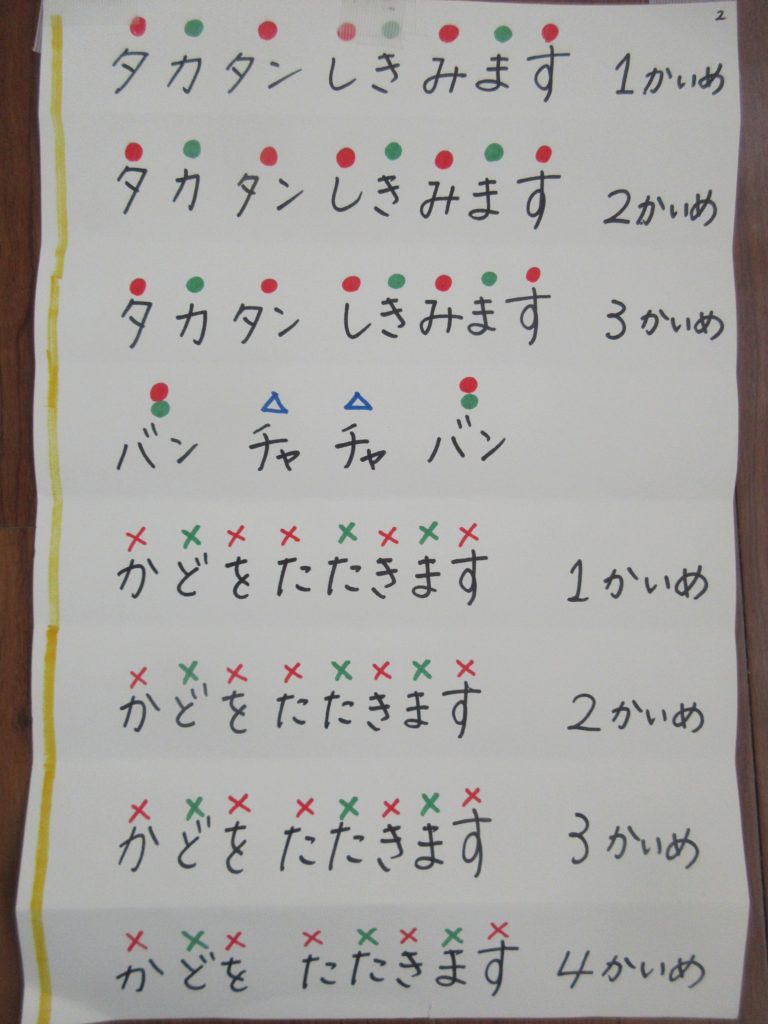 2
タカタン しきみます 1かいめ
タカ タン しきみます 2かいめ
タカタン しきみます 3かいめ
バン チャ チャ バン
かどをたたきます 1かいめ
かどをたたきます 2かいめ
かどを たたきます 3かいめ
かどを たたきます 4かいめ